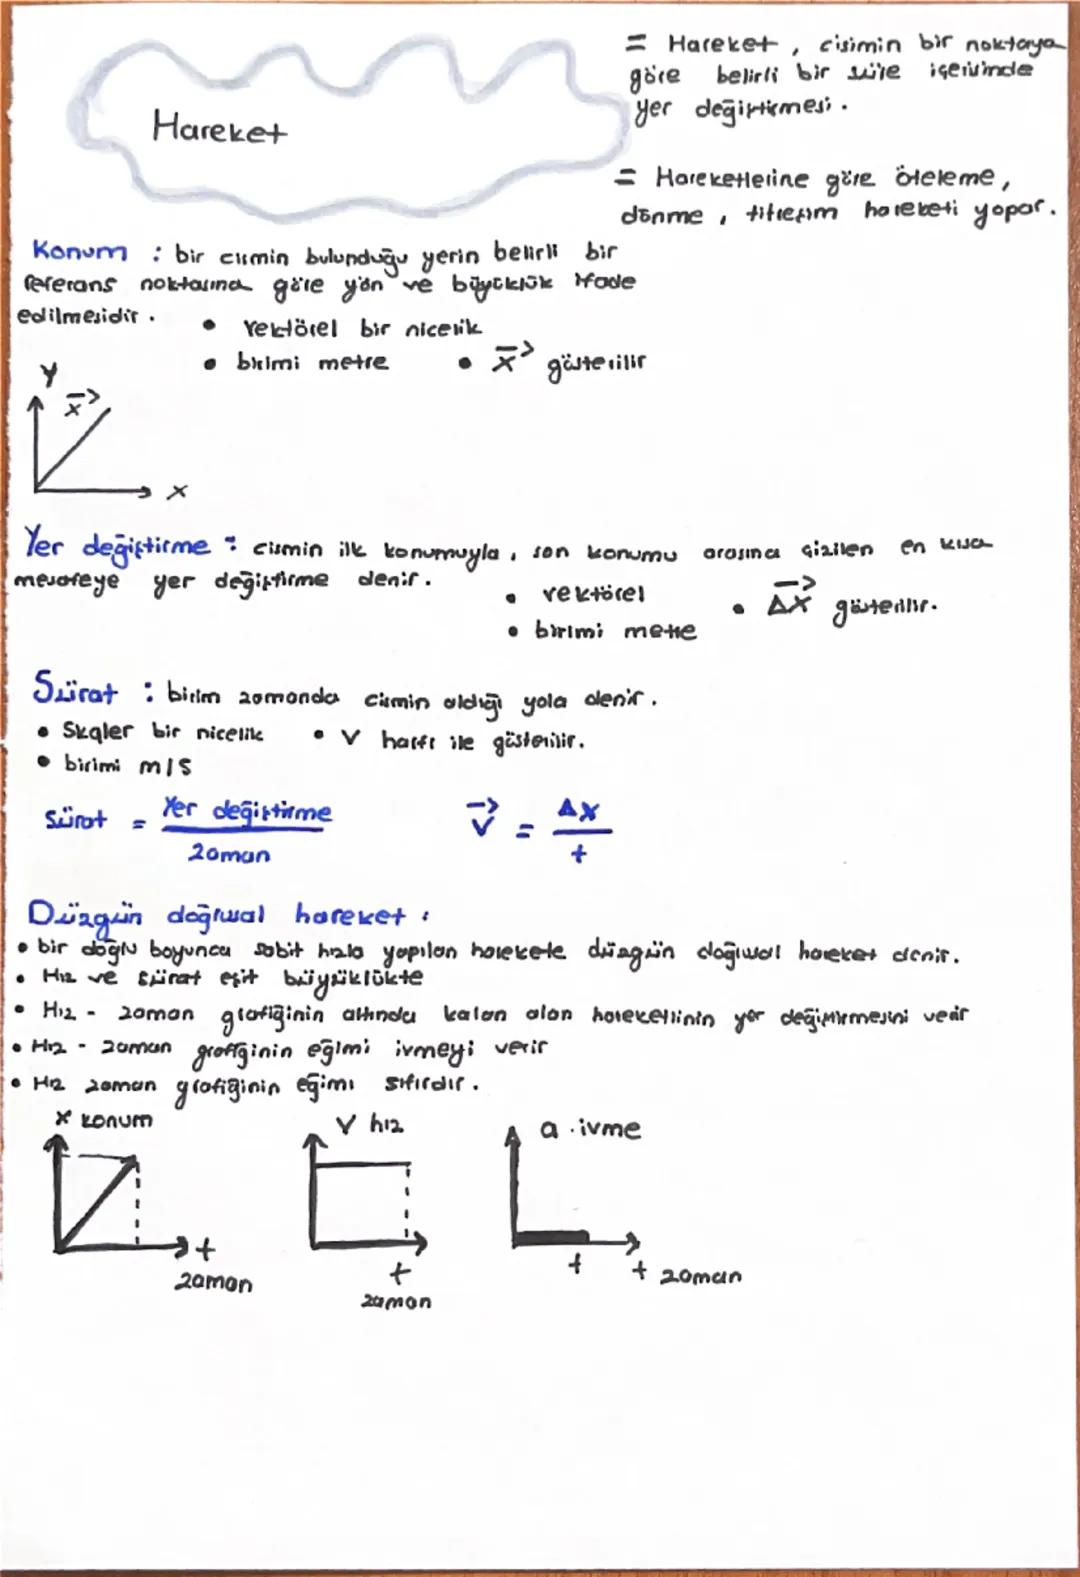 Hareket
= Hareket, cisimin bir noktaya
göre belirli bir süre içerisinde
yer değiştirmesi.
= Hareketlerine göre öteleme,
dönme, titreşim hareketi yapar.
Konum : bir cismin bulunduğu yerin belirli bir
referans noktasına göre yön ve büyüklük ifade
edilmesidir.
• Vektörel bir nicelik
• birimi metre • x⃗ gösterilir
y
x⃗
x
Yer değiştirme : cismin ilk konumuyla, son konumu arasına çizilen en kısa
mesafeye yer değiştirme denir.
• vektörel • Δx⃗ gösterilir.
• birimi metre
Sürat : birim zamanda cismin aldığı yola denir.
• Skaler bir nicelik • V harfi ile gösterilir.
• birimi m/s
Sürat = Yer değiştirme / zaman
v⃗ = Δx / t
Düzgün doğrusal hareket :
• bir doğru boyunca sabit hızla yapılan harekete düzgün doğrusal hareket denir.
• Hız ve sürat eşit büyüklükte
• Hız - zaman grafiğinin altında kalan alan hareketlinin yer değiştirmesini verir
• Hız - zaman grafiğinin eğimi ivmeyi verir
• Hız zaman grafiğinin eğimi sıfırdır.
x konum V hız a ivme
t
zaman
t
zaman
t t zaman